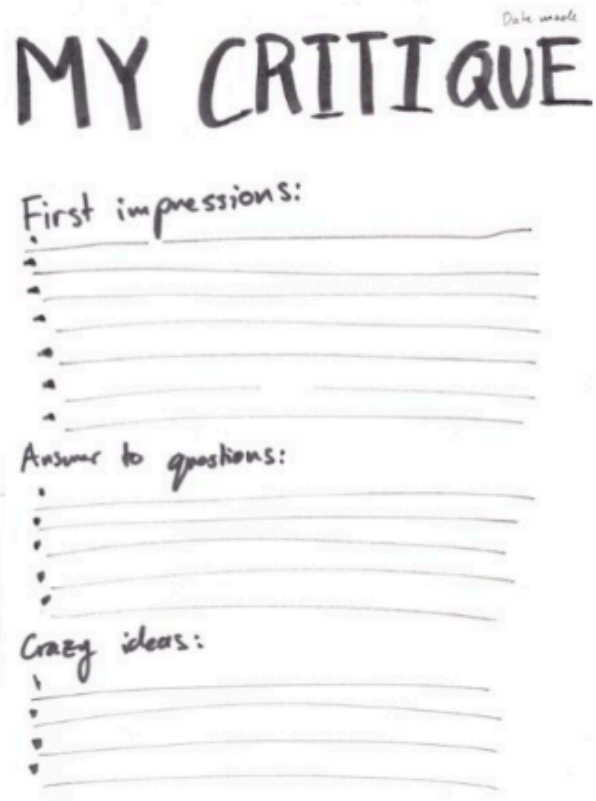 Date made
MY CRITIQUE
First impressions:
Answer to questions:
Crazy ideas: